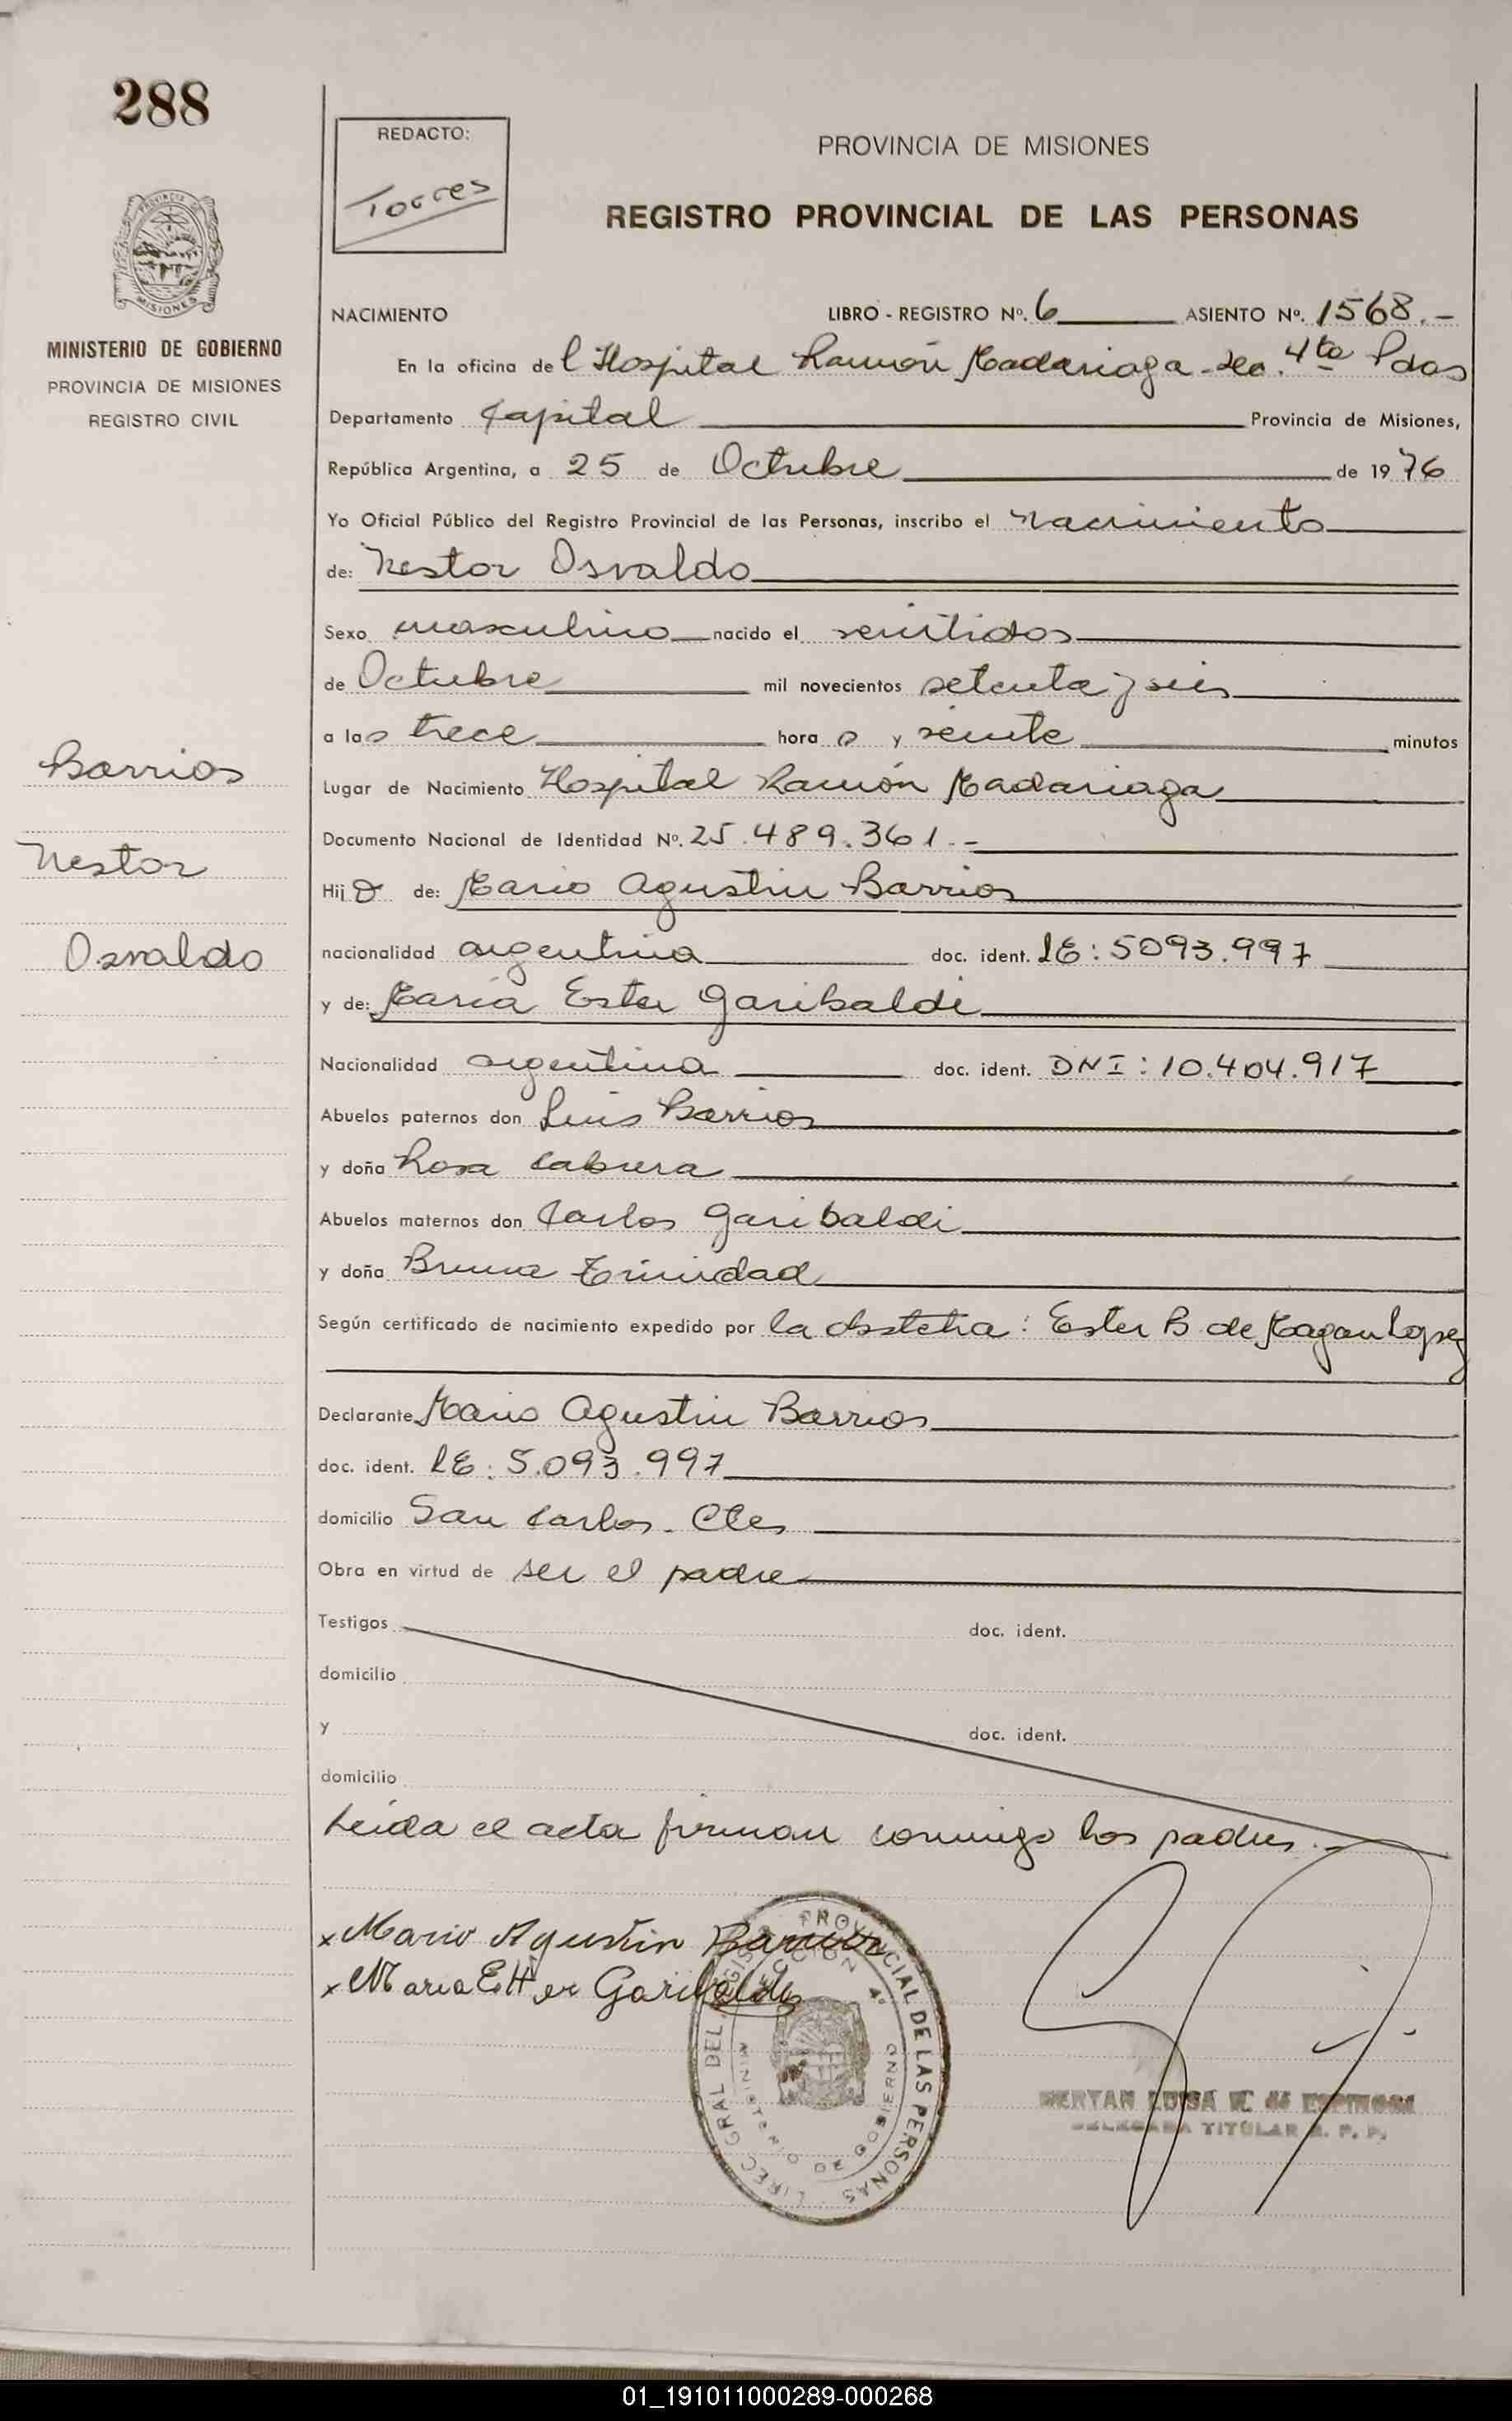 288
REDACTO:
Torres
PROVINCIA DE MISIONES
REGISTRO PROVINCIAL DE LAS PERSONAS
MISIONES
MINISTERIO DE GOBIERNO
PROVINCIA DE MISIONES
REGISTRO CIVIL
NACIMIENTO LIBRO - REGISTRO Nº. 6 ASIENTO Nº. 1568.-
En la oficina de l Hospital Ramón Madariaga - Sec. 4ta Pdas
Departamento Capital Provincia de Misiones,
República Argentina, a 25 de Octubre de 1976
Yo Oficial Público del Registro Provincial de las Personas, inscribo el nacimiento
de: Nestor Osvaldo
Sexo masculino nacido el veintidos
de Octubre mil novecientos setenta y seis
a las trece hora s y veinte minutos
Lugar de Nacimiento Hospital Ramón Madariaga
Documento Nacional de Identidad Nº. 25.489.361.-
Hijo de: Mario Agustin Barrios
nacionalidad argentina doc. ident. LE: 5093.997
y de: Maria Ester Garibaldi
Nacionalidad argentina doc. ident. DNI: 10.404.917
Abuelos paternos don Luis Barrios
y doña Rosa Cabrera
Abuelos maternos don Carlos Garibaldi
y doña Bruna Trinidad
Según certificado de nacimiento expedido por la obstetra: Ester B. de Magan Lopez
Declarante Mario Agustin Barrios
doc. ident. LE: 5.093.997
domicilio San Carlos - Ctes
Obra en virtud de ser el padre
Testigos doc. ident.
domicilio
y doc. ident.
domicilio
Leida el acta firman conmigo los padres.-
Barrios
Nestor
Osvaldo
x Mario Agustin Barrios
x Maria Ester Garibaldi
DIREC. GRAL DEL REGISTRO PROVINCIAL DE LAS PERSONAS
SECCION 4ª
MINISTERIO DE GOBIERNO
LUISA de ESPINOSA
DELEGADA TITULAR R. P. P.
01_191011000289-000268